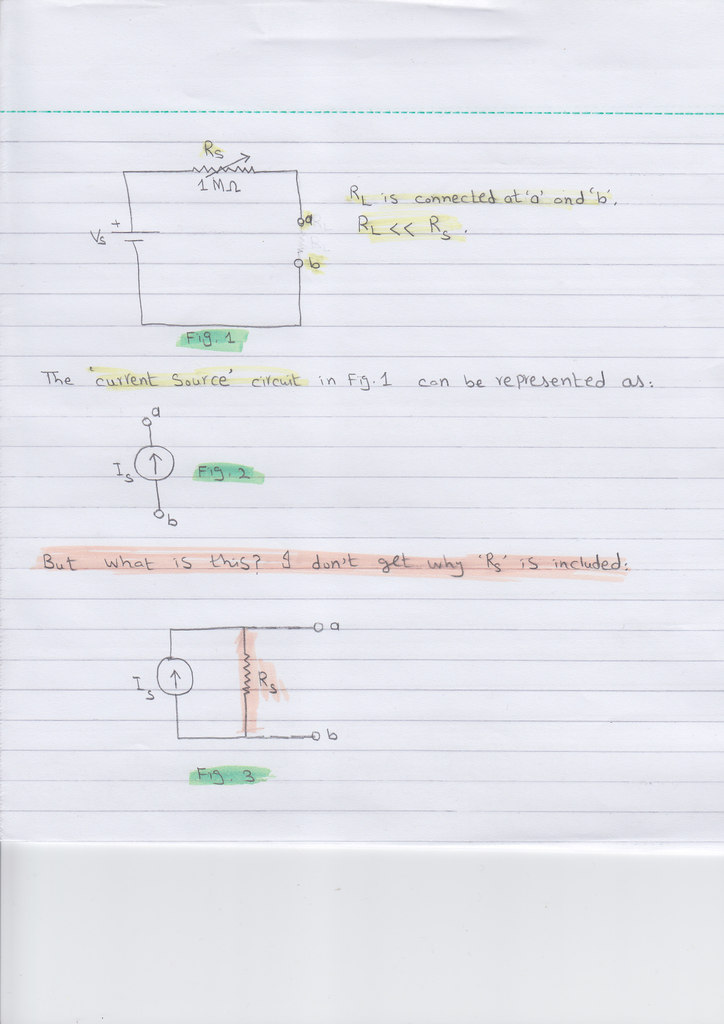 Rs
1 MΩ
RL is connected at 'a' and 'b'.
a
+
Vs
RL << Rs.
b
Fig. 1
The 'current Source' circuit in Fig. 1 can be represented as:
a
Is
Fig. 2
b
But what is this? I don't get why 'Rs' is included:
a
Is
Rs
b
Fig. 3